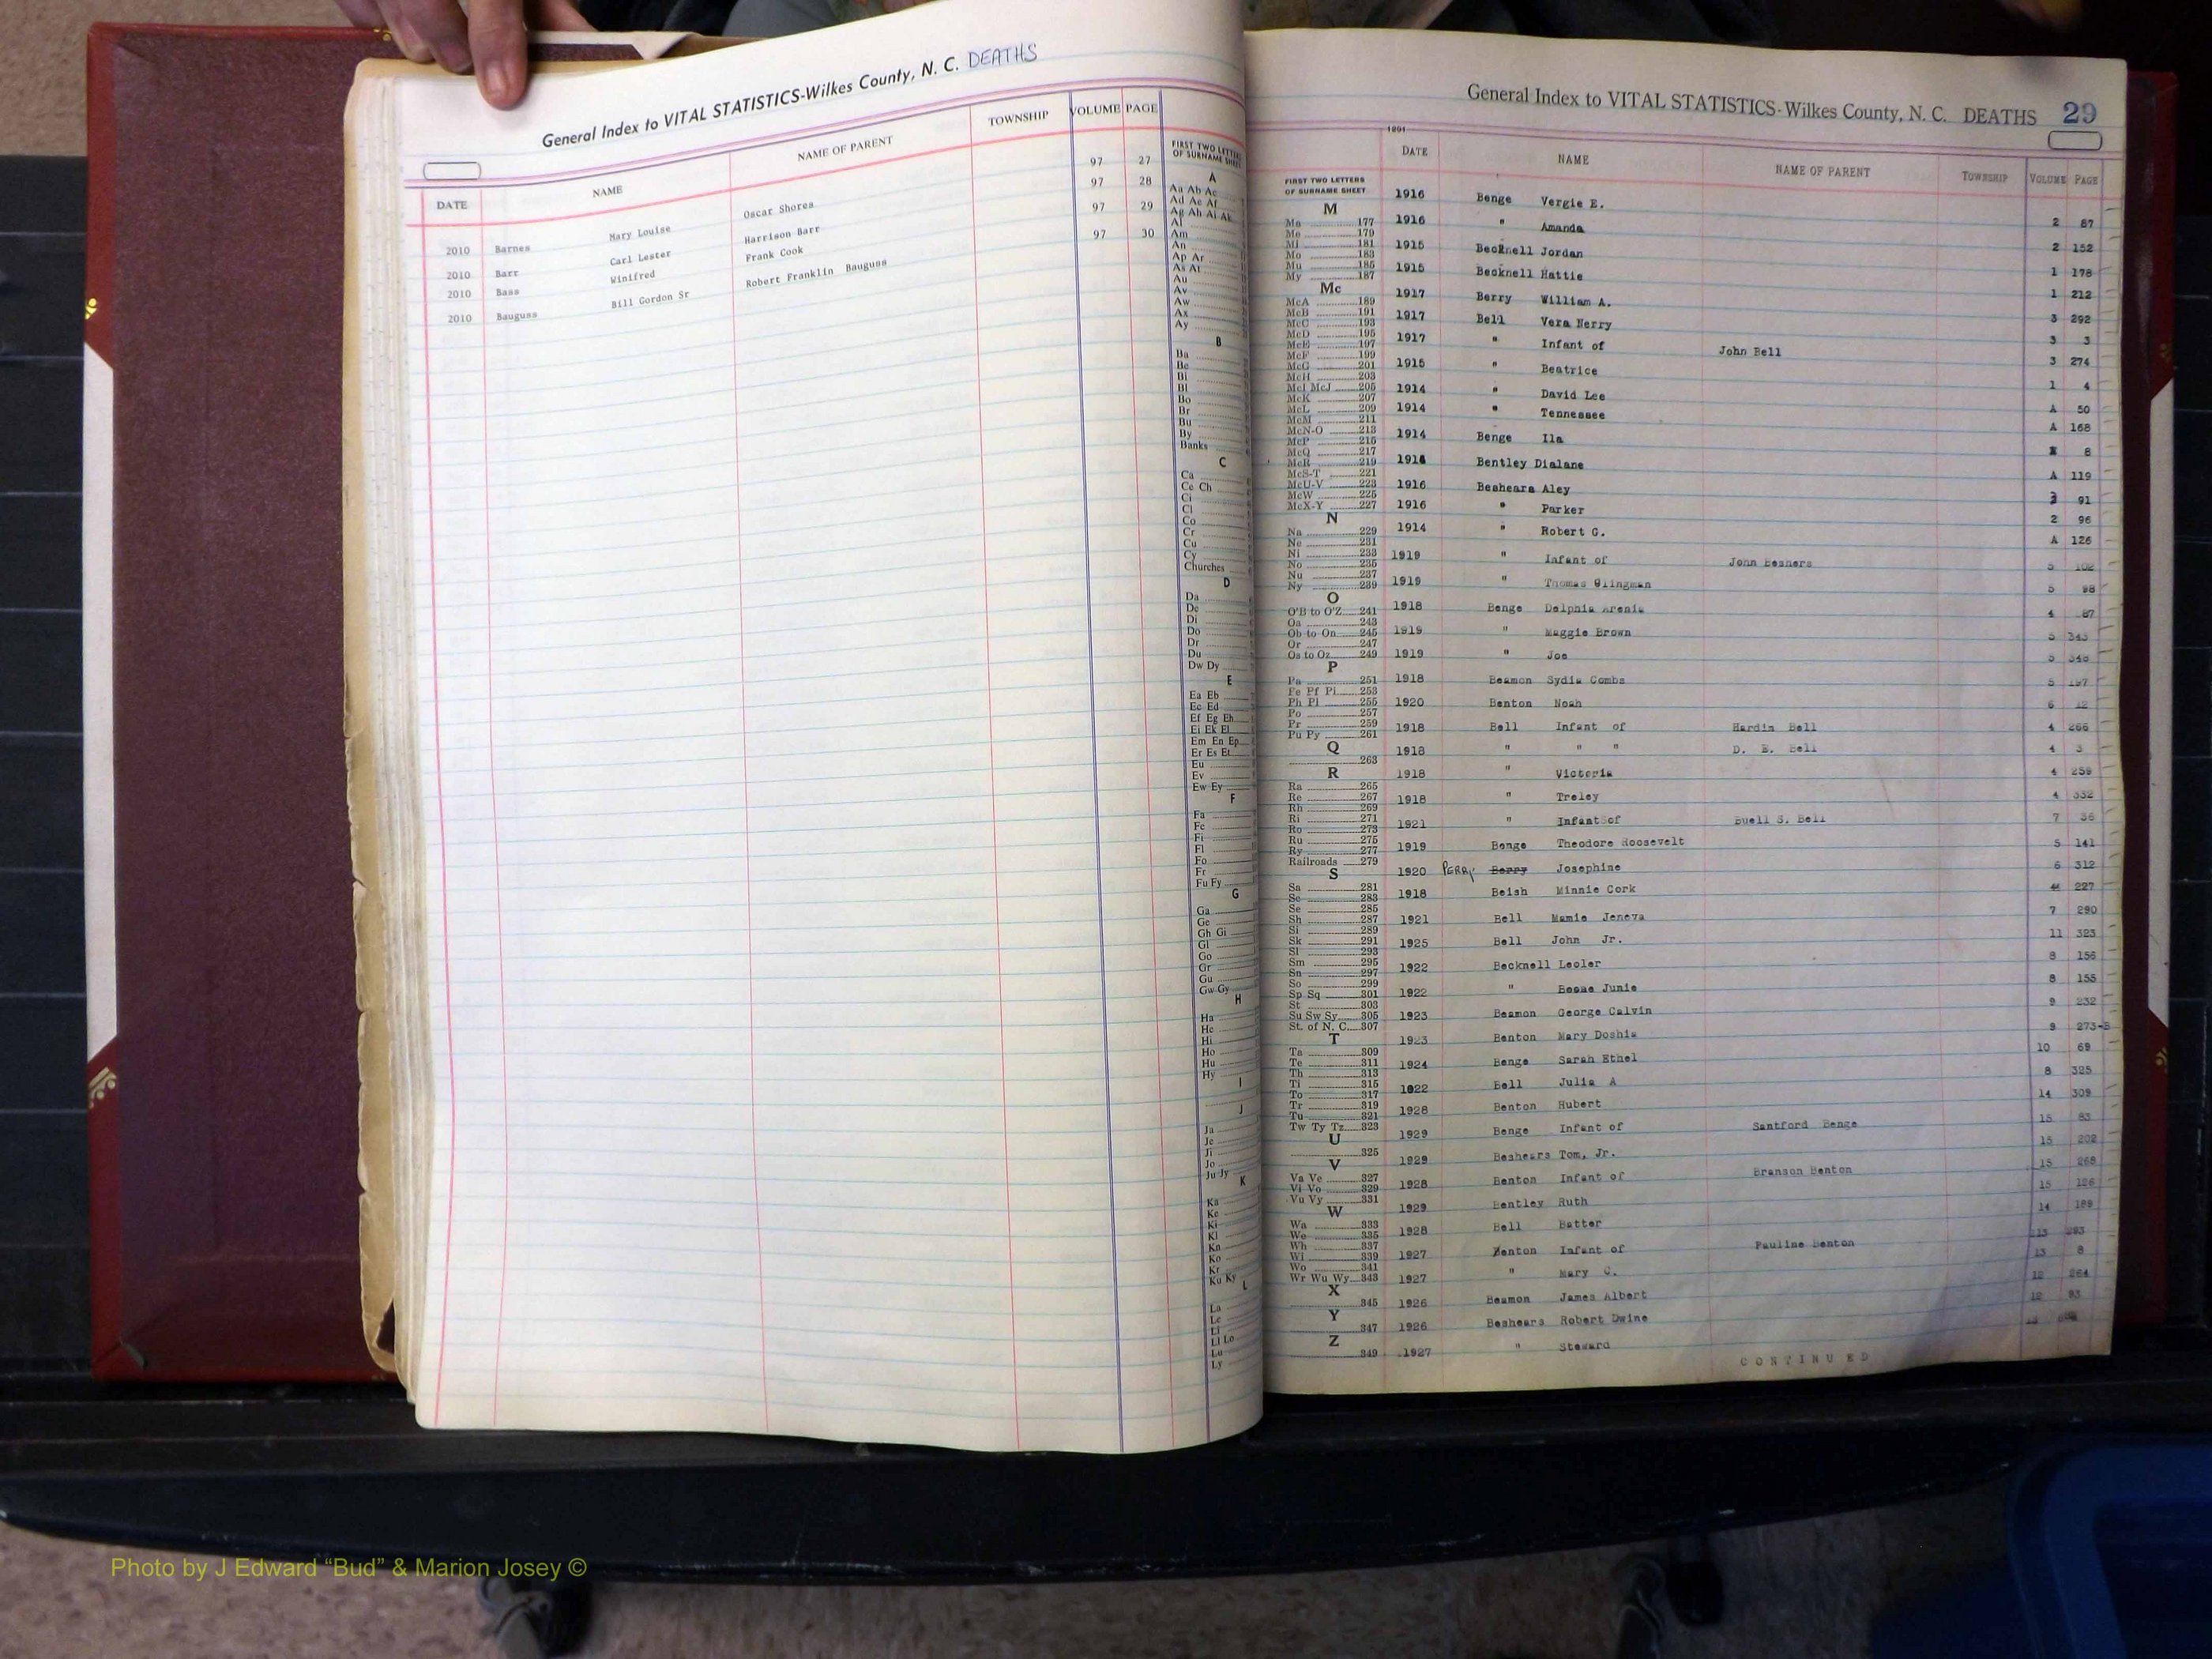 General Index to VITAL STATISTICS-Wilkes County, N. C. DEATHS
DATE NAME NAME OF PARENT TOWNSHIP VOLUME PAGE
2010 Barnes Mary Louise Oscar Shores 97 27
2010 Barr Carl Lester Harrison Barr 97 28
2010 Bass Winifred Frank Cook 97 29
2010 Bauguss Bill Gordon Sr Robert Franklin Bauguss 97 30
FIRST TWO LETTERS
OF SURNAME SHEET
A
Aa Ab Ac
Ad Ae Af
Ag Ah Ai Ak
Al
Am
An
Ap Ar
As At
Au
Av
Aw
Ax
Ay
B
Ba
Be
Bi
Bl
Bo
Br
Bu
By
Banks
C
Ca
Ce Ch
Ci
Cl
Co
Cr
Cu
Cy
Churches
D
Da
De
Di
Do
Dr
Du
Dw Dy
E
Ea Eb
Ec Ed
Ef Eg Eh
Ei Ek El
Em En Ep
Er Es Et
Eu
Ev
Ew Ey
F
Fa
Fe
Fi
Fl
Fo
Fr
Fu Fy
G
Ga
Ge
Gh Gi
Gl
Go
Gr
Gu
Gw Gy
H
Ha
He
Hi
Ho
Hu
Hy
I
J
Ja
Je
Ji
Jo
Ju Jy
K
Ka
Ke
Ki
Kl
Kn
Ko
Kr
Ku Ky
L
La
Le
Li
Ll Lo
Lu
Ly
General Index to VITAL STATISTICS-Wilkes County, N. C. DEATHS 29
DATE NAME NAME OF PARENT TOWNSHIP VOLUME PAGE
FIRST TWO LETTERS
OF SURNAME SHEET
M
Ma 177
Me 179
Mi 181
Mo 183
Mu 185
My 187
Mc
McA 189
McB 191
McC 193
McD 195
McE 197
McF 199
McG 201
McH 203
McI McJ 205
McK 207
McL 209
McM 211
McN-O 213
McP 215
McQ 217
McR 219
McS-T 221
McU-V 223
McW 225
McX-Y 227
N
Na 229
Ne 231
Ni 233
No 235
Nu 237
Ny 239
O
O'B to O'Z 241
Oa 243
Ob to On 245
Or 247
Os to Oz 249
P
Pa 251
Pe Pf Pi 253
Ph Pl 255
Po 257
Pr 259
Pu Py 261
Q
263
R
Ra 265
Re 267
Rh 269
Ri 271
Ro 273
Ru 275
Ry 277
Railroads 279
S
Sa 281
Sc 283
Se 285
Sh 287
Si 289
Sk 291
Sl 293
Sm 295
Sn 297
So 299
Sp Sq 301
St 303
Su Sw Sy 305
St. of N. C. 307
T
Ta 309
Te 311
Th 313
Ti 315
To 317
Tr 319
Tu 321
Tw Ty Tz 323
U
325
V
Va Ve 327
Vi Vo 329
Vu Vy 331
W
Wa 333
We 335
Wh 337
Wi 339
Wo 341
Wr Wu Wy 343
X
345
Y
347
Z
349
1916 Benge Vergie E. 2 87
1916 " Amanda 2 152
1915 Becknell Jordan 1 178
1915 Becknell Hattie 1 212
1917 Berry William A. 3 292
1917 Bell Vera Nerry 3 3
1917 " Infant of John Bell 3 274
1915 " Beatrice 1 4
1914 " David Lee A 50
1914 " Tennessee A 168
1914 Benge Ila 8
1916 Bentley Dialane A 119
1916 Beshears Aley 91
1916 " Parker 2 96
1914 " Robert G. A 126
1919 " Infant of John Beshers 5 102
1919 " Thomas Clingman 5 98
1918 Benge Delphia Arenia 4 87
1919 " Maggie Brown 5 343
1919 " Joe 5
1918 Beamon Sydia Combs 5
1920 Benton Noah 6 12
1918 Bell Infant of Hardin Bell 4 266
1918 " " " D. E. Bell 4 3
1918 " Victoria 4 259
1918 " Treley 4 332
1921 " Infant of Buell S. Bell 7 36
1919 Benge Theodore Roosevelt 5 141
1920 PERRY Berry Josephine 6 312
1918 Beish Minnie Cork 4 227
1921 Bell Mamie Jeneva 7 290
1925 Bell John Jr. 11 323
1922 Becknell Leoler 8 156
1922 " Junie 8 155
1923 Beamon George Calvin 9 232
1923 Benton Mary Doshia 9 273-B
1924 Benge Sarah Ethel 10 69
1922 Bell Julia A 8 325
1928 Benton Hubert 14 309
1929 Benge Infant of Santford Benge 15 83
1929 Beshears Tom, Jr. 15 202
1928 Benton Infant of Branson Benton 15 268
1929 Bentley Ruth 15 126
1928 Bell Batter 14 189
1927 Benton Infant of Pauline Benton 13 293
1927 " Mary C. 13 8
1926 Beamon James Albert 12 264
1926 Beshears Robert Dwine 12 93
1927 " Steward
CONTINUED
Photo by J Edward “Bud” & Marion Josey ©